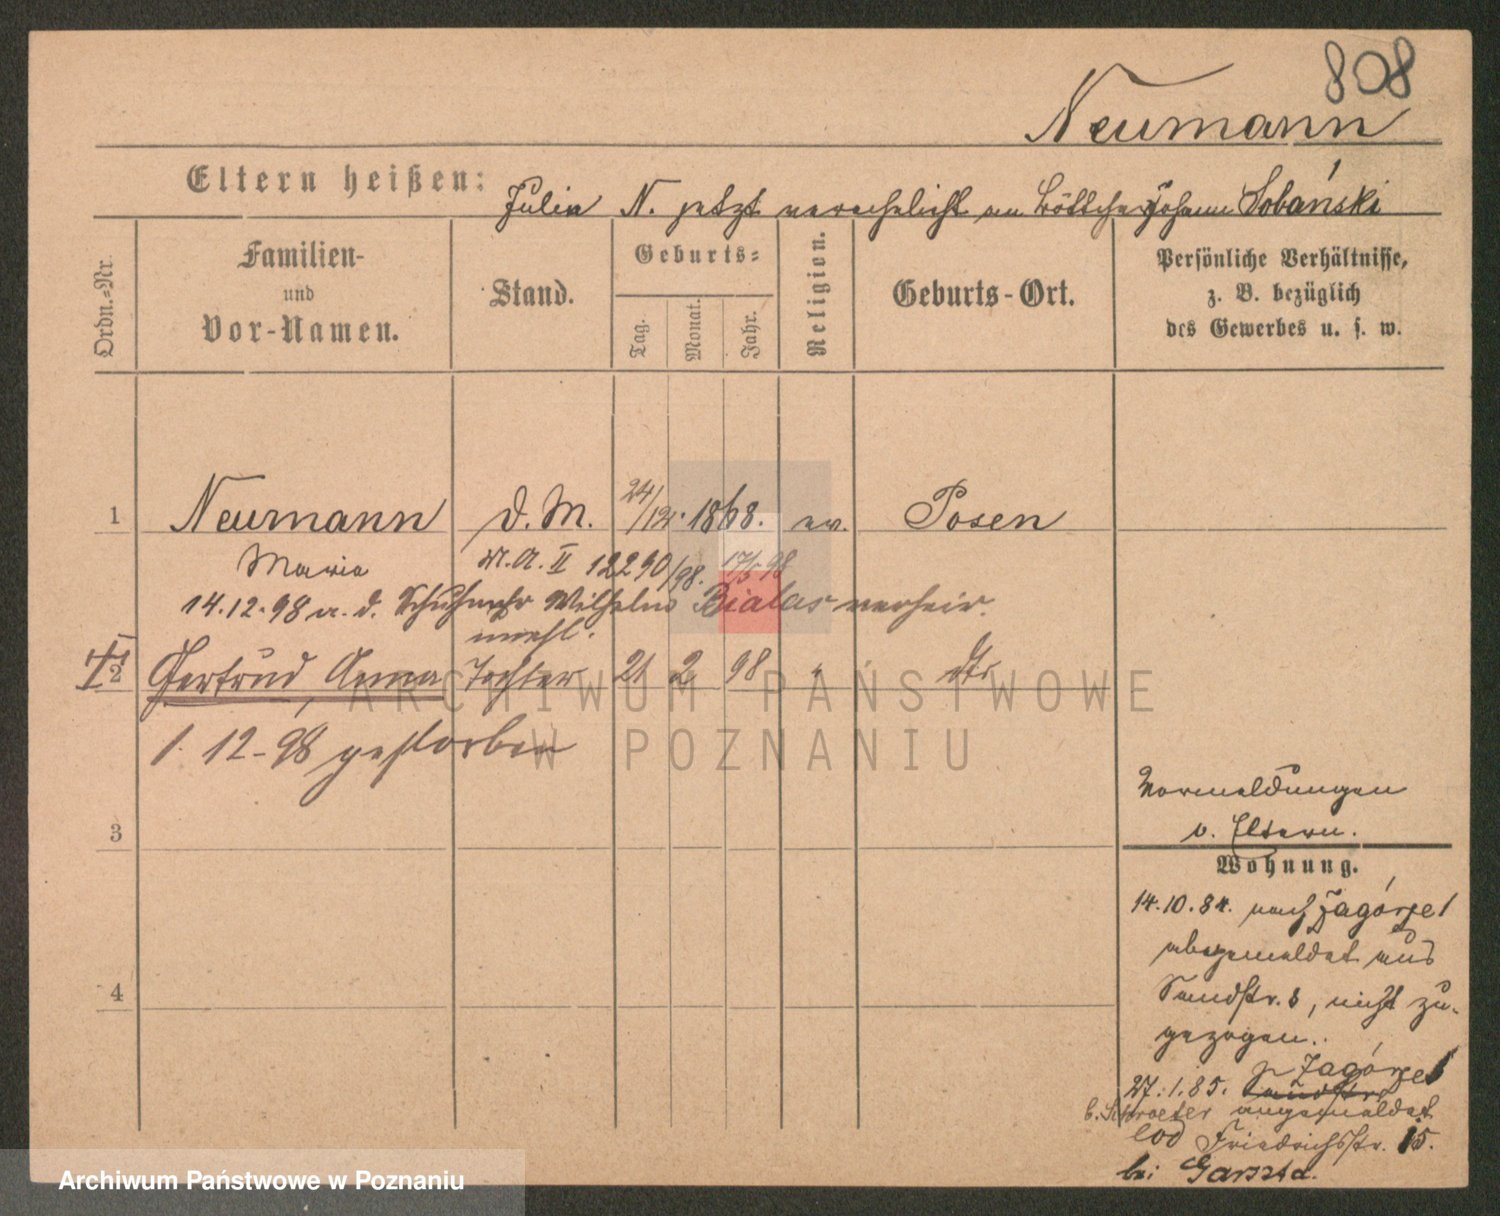 808
Neumann
Eltern heißen: Julia N. jetzt verehelicht an Böttcher Johann Sobański
Ordn.=Nr.
Familien- und Vor-Namen.
Stand.
Geburts=
Tag.
Monat.
Jahr.
Religion.
Geburts-Ort.
Persönliche Verhältnisse,
z. B. bezüglich
des Gewerbes u. s. w.
1 Neumann D. M. 24/12. 1868. ev. Posen
Maria M. A. II 12290/98. 17/5 98
14.12.98 a. d. Schuhmchr Wilhelm Bialas verheir.
unehl.
2 Gertrud, Anna Tochter 21 2 98 " dto
1. 12-98 gestorben
3
4
Vormeldungen
v. Eltern.
Wohnung.
14.10.84. nach Zagórze 1
abgemeldet aus
Sandstr. 8, nicht zu-
gezogen.
27.1.85. Zagórze
b. Schroeter angemeldet
eod Friedrichsstr. 15.
bei Garszta.
ARCHIWUM PAŃSTWOWE
W POZNANIU
Archiwum Państwowe w Poznaniu